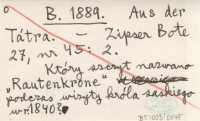 B. 1889. Aus der
Tátra. — Zipser Bote
27, nr 45: 2.
Który szczyt nazwano
„Rautenkrone"
podczas wizyty króla saskiego
w r. 1840?